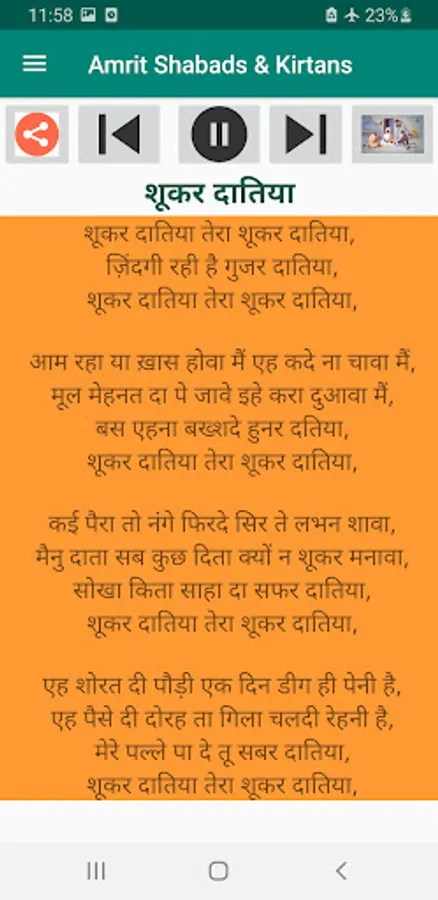 11:58
23%
Amrit Shabads & Kirtans
शूकर दातिया
शूकर दातिया तेरा शूकर दातिया,
ज़िंदगी रही है गुजर दातिया,
शूकर दातिया तेरा शूकर दातिया,
आम रहा या ख़ास होवा मैं एह कदे ना चावा मैं,
मूल मेहनत दा पे जावे इहे करा दुआवा मैं,
बस एहना बख्शदे हुनर दतिया,
शूकर दातिया तेरा शूकर दातिया,
कई पैरा तो नंगे फिरदे सिर ते लभन शावा,
मैनु दाता सब कुछ दिता क्यों न शूकर मनावा,
सोखा किता साहा दा सफर दातिया,
शूकर दातिया तेरा शूकर दातिया,
एह शोरत दी पौड़ी एक दिन डीग ही पेनी है,
एह पैसे दी दोरह ता गिला चलदी रेहनी है,
मेरे पल्ले पा दे तू सबर दातिया,
शूकर दातिया तेरा शूकर दातिया,